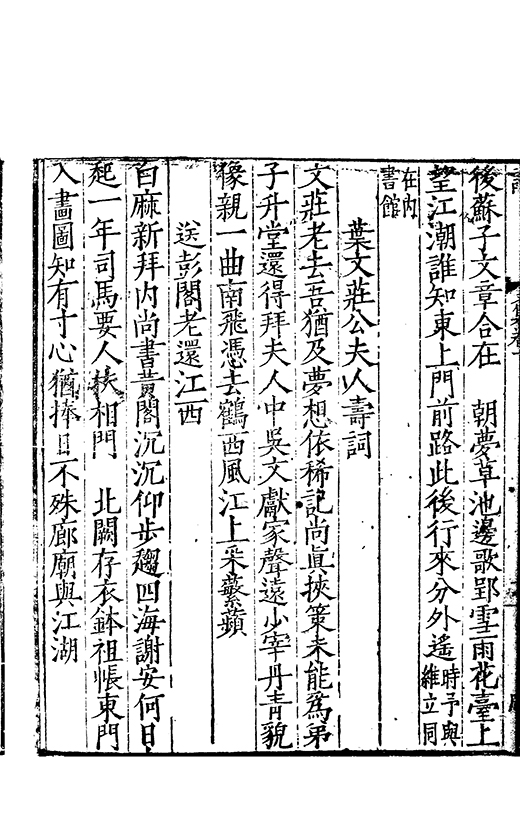 後蘇子文章合在　朝夢草池邊歌郢雪雨花臺上
望江潮誰知東上門前路此後行來分外遙時予與維立同
在內書館
葉文莊公夫人壽詞
文莊老去吾猶及夢想依稀記尚真挾策未能為弟
子升堂還得拜夫人中吳文獻家聲遠少宰丹青貌
像親一曲南飛憑去鶴西風江上采蘩蘋
送彭閣老還江西
白麻新拜內尚書黃閣沉沉仰步趨四海謝安何日
起一年司馬要人扶相門　北闕存衣鉢祖帳東門
入畫圖知有寸心猶捧日不殊廊廟與江湖